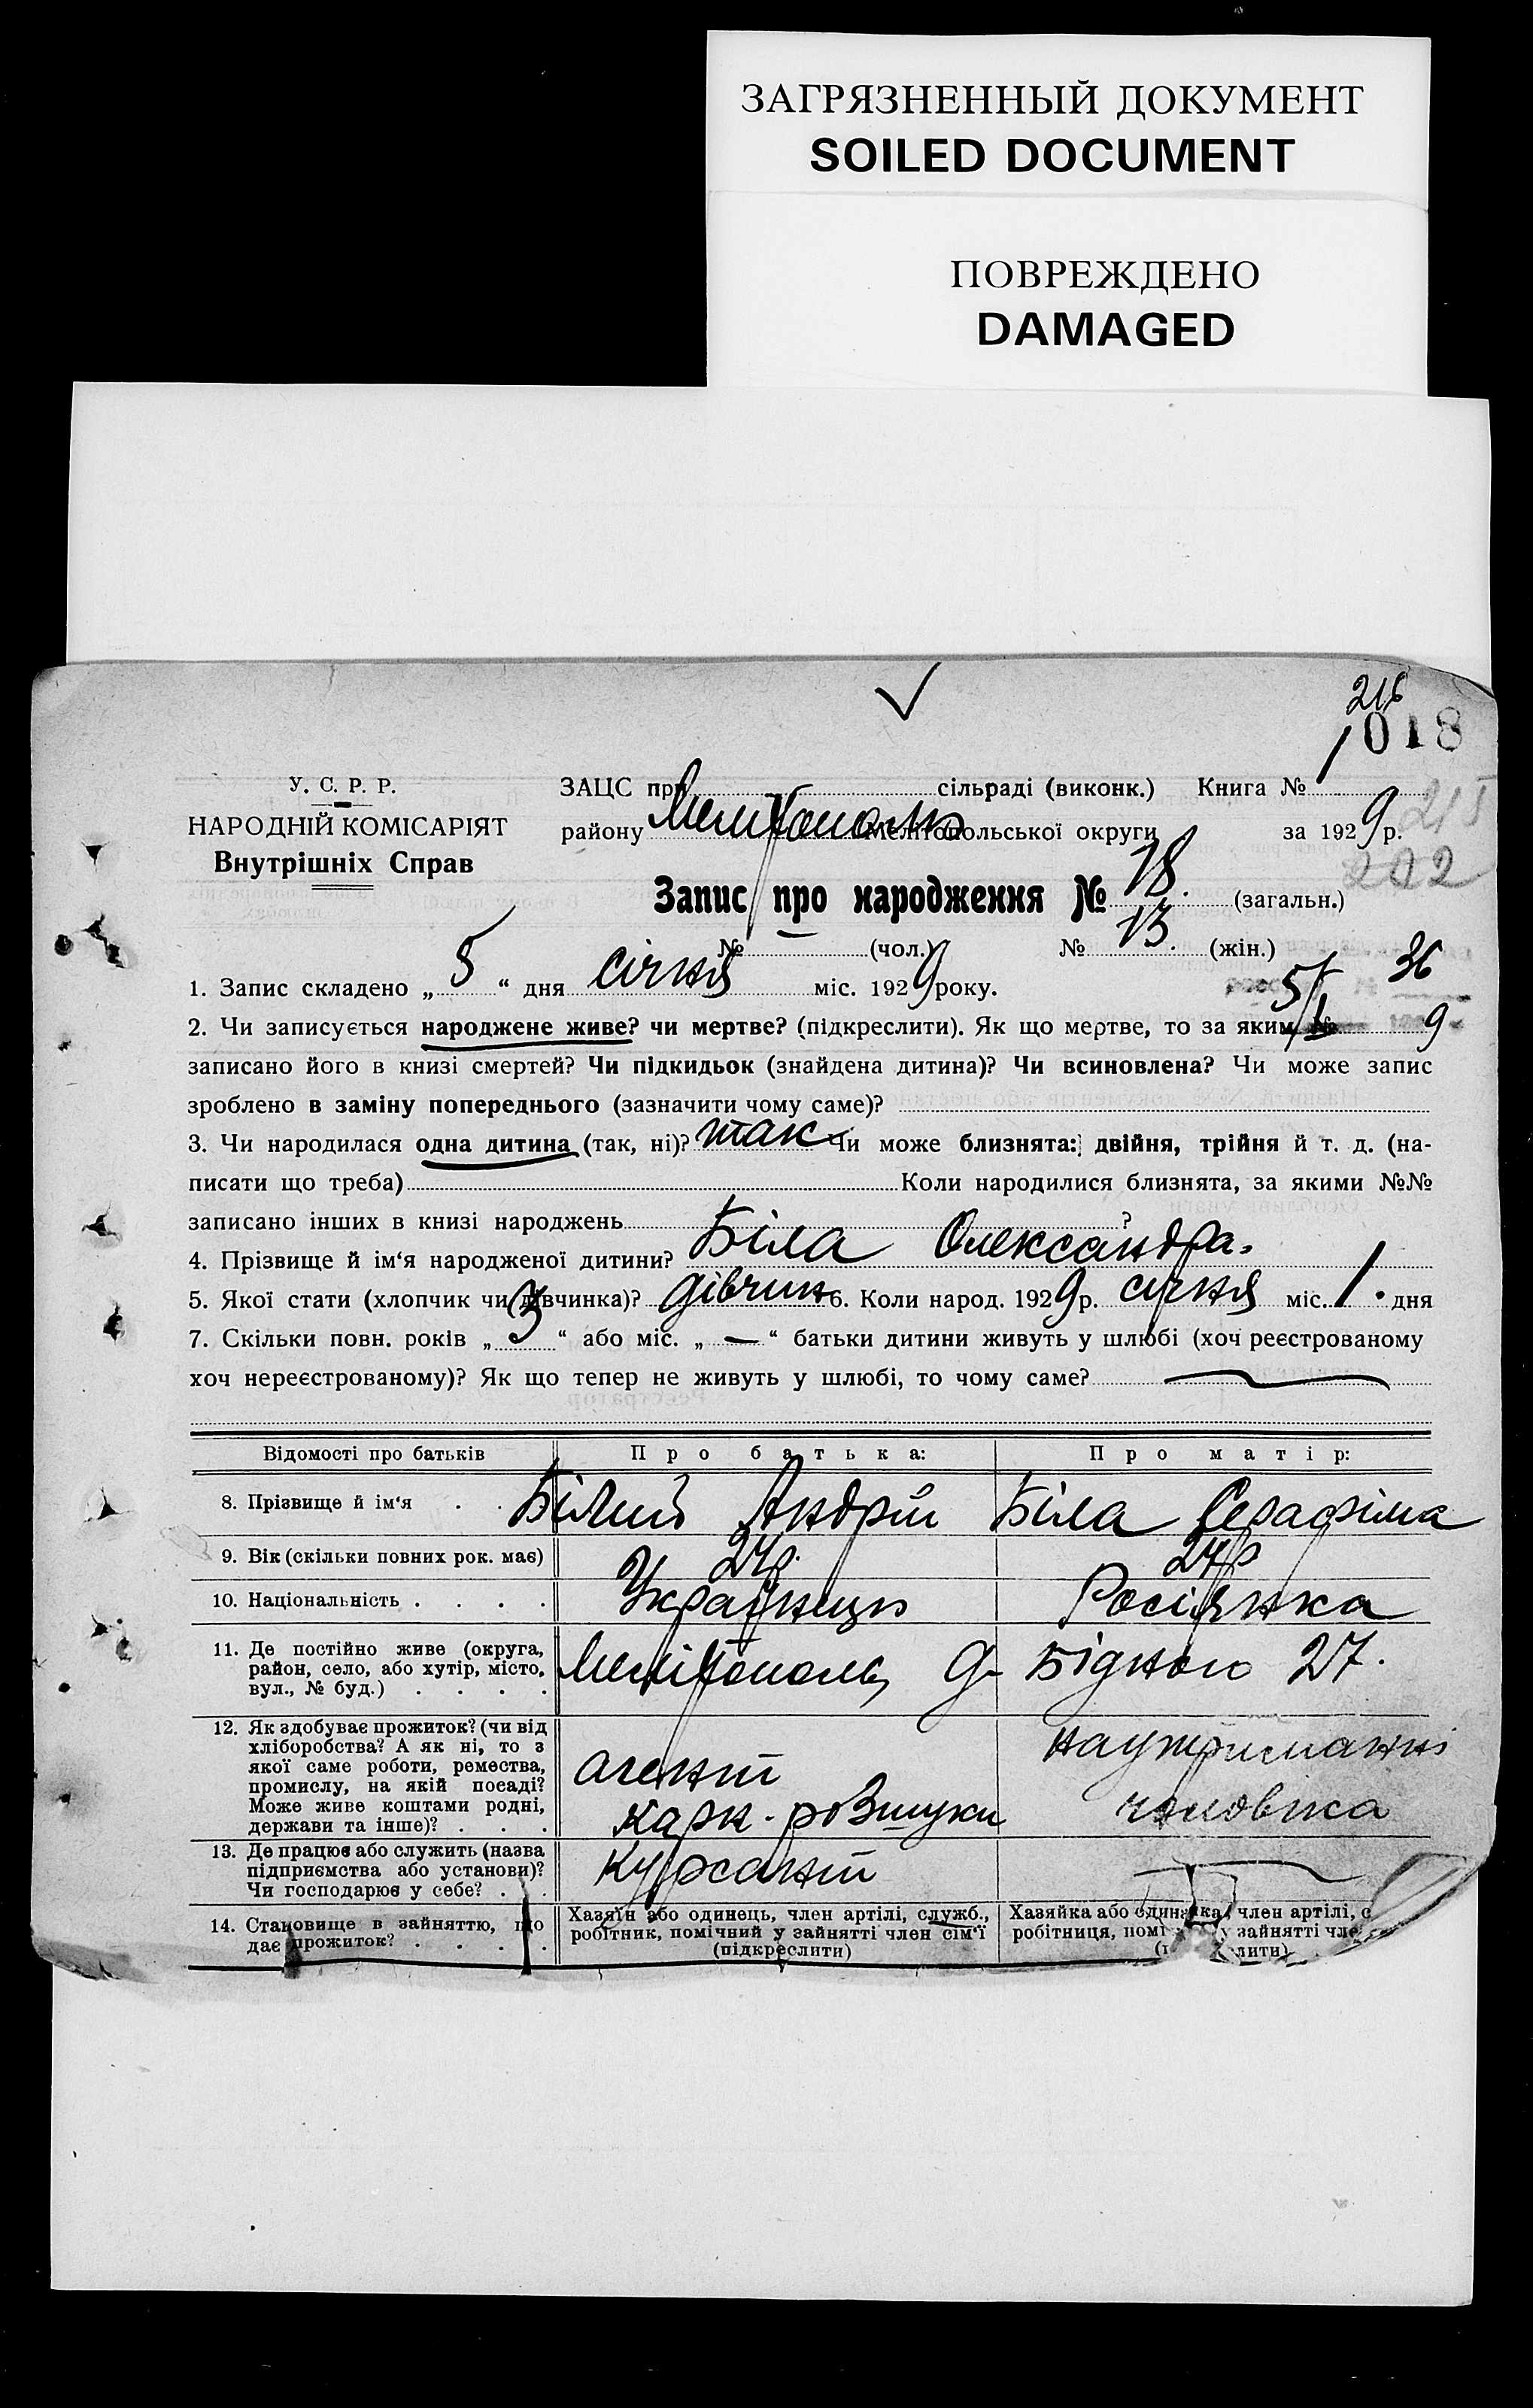 ЗАГРЯЗНЕННЫЙ ДОКУМЕНТ
SOILED DOCUMENT
ПОВРЕЖДЕНО
DAMAGED
216
1018
У. С. Р. Р.
НАРОДНІЙ КОМІСАРІЯТ
Внутрішніх Справ
ЗАЦС при сільраді (виконк.) Книга №
району Мелітополь Мелітопольської округи за 1929 р.
215
202
Запис про народження № 18. (загальн.)
№ (чол.) № 13. (жін.)
36
1. Запис складено „ 5 “ дня січня міс. 1929 року.
5/I 9
2. Чи записується народжене живе? чи мертве? (підкреслити). Як що мертве, то за яким №
записано його в книзі смертей? Чи підкидьок (знайдена дитина)? Чи всиновлена? Чи може запис
зроблено в заміну попереднього (зазначити чому саме)?
3. Чи народилася одна дитина (так, ні)? так Чи може близнята: двійня, трійня й т. д. (на-
писати що треба) Коли народилися близнята, за якими №№
записано інших в книзі народжень ?
4. Прізвище й ім‘я народженої дитини? Біла Олександра.
5. Якої статі (хлопчик чи дівчинка)? дівчин 6. Коли народ. 1929 р. січня міс. 1. дня
7. Скільки повн. років „ 3 “ або міс. „ — “ батьки дитини живуть у шлюбі (хоч реєстрованому
хоч нереєстрованому)? Як що тепер не живуть у шлюбі, то чому саме?
Відомості про батьків Про батька: Про матір:
8. Прізвище й ім‘я . . Білий Андрій Біла Серафіма
9. Вік (скільки повних рок. має) 24р. 24р
10. Національність . . . . Українець Росіянка
11. Де постійно живе (округа,
район, село, або хутір, місто,
вул., № буд.) . . . .
Мелітополь, Д- Бідного 27.
12. Як здобуває прожиток? (чи від
хліборобства? А як ні, то з
якої саме роботи, ремества,
промислу, на якій посаді?
Може живе коштами родні,
держави та інше)? . . .
агент
карн. розшуку
на утриманні
чоловіка
13. Де працює або служить (назва
підприємства або установи)?
Чи господарює у себе? . .
Курсант
14. Становище в зайняттю, що
дає прожиток? . . . .
Хазяїн або одинець, член артілі, служб.,
робітник, помічний у зайнятті член сім‘ї
(підкреслити)
Хазяйка або одиначка, член артілі, с
робітниця, помі у зайнятті чле
лити)